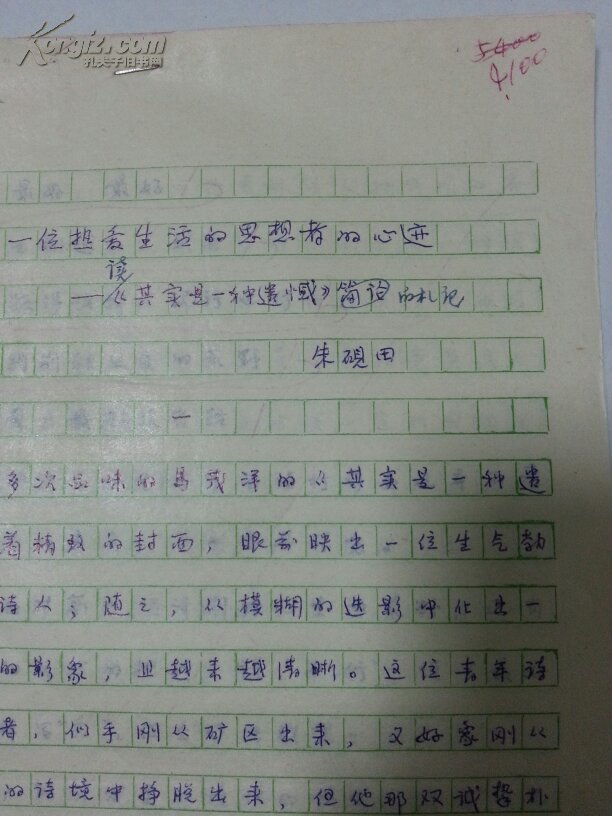 Kongfz.com
孔夫子旧书网
5400
4100
一位热爱生活的思想者的心迹
读
——《其实是一种遗憾》简论 的札记
朱砚田
一
多次品味的马茂洋的《其实是一种遗
着精致的封面，眼前映出一位生气勃
诗人；随之，从模糊的迭影中化出一
的影象，且越来越清晰。这位青年诗
者，们乎刚从矿区出来，又好象刚从
的诗境中挣脱出来，但他那双诚挚朴